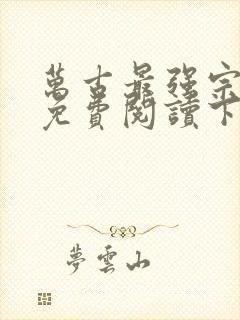 萬古最强宗
免費閱讀下
夢雲山